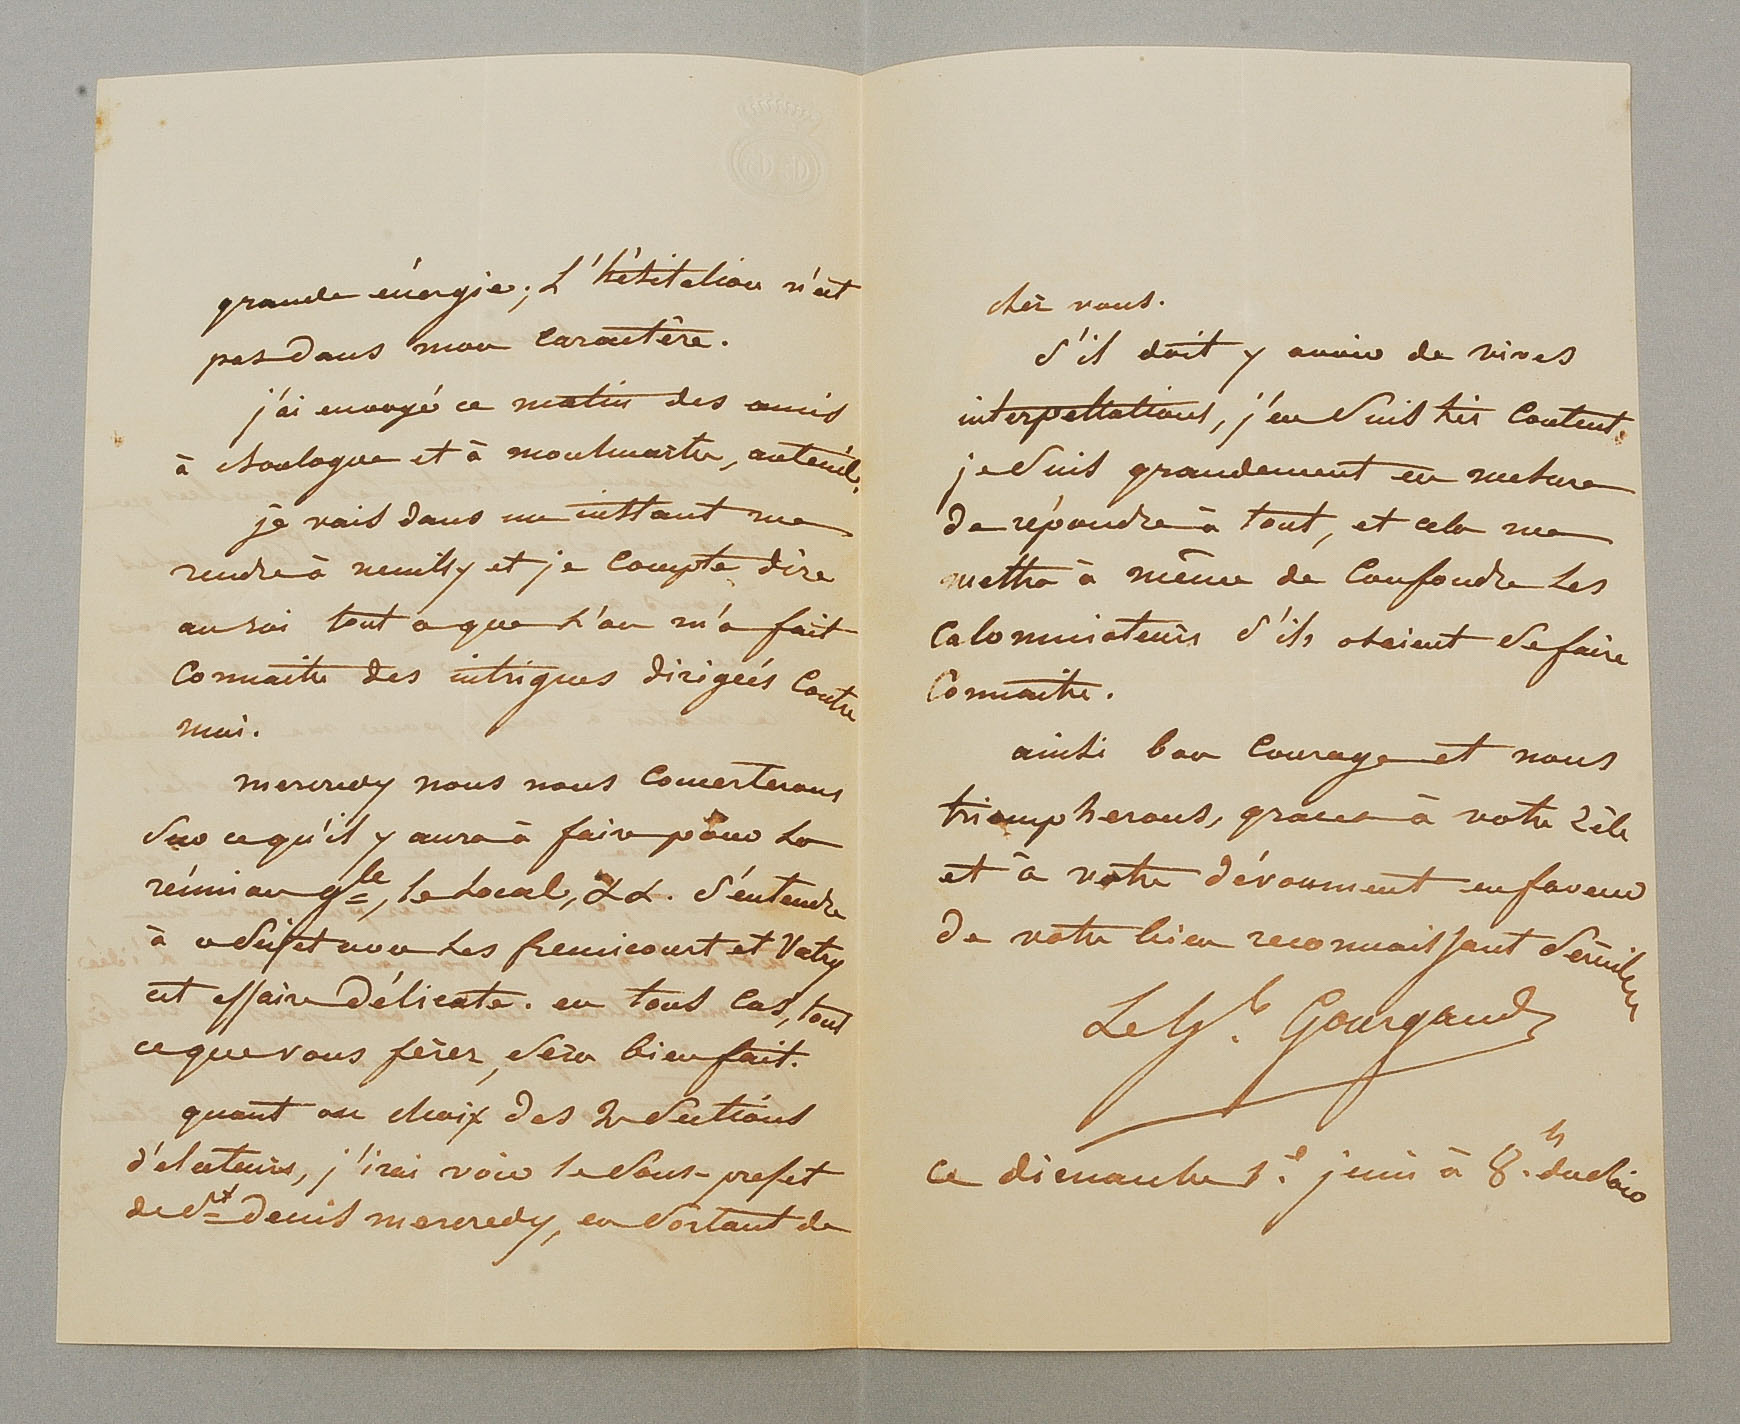 grande énergie; L'hésitation n'est
pas dans mon Caractère.
j'ai envoyé ce matin des amis
à Boulogne et à montmartre, auteuil,
je vais dans un instant me
rendre à neuilly et je Compte dire
au roi tout ce que L'on m'a fait
Connaitre des intrigues dirigées Contre
moi.
mercredy nous nous Concerterons
Sur ce qu'il y aura à faire pour La
réunion gle, le Local, &&. S'entendre
à ce Sujet avec Les fremicourt et Vatry
est affaire Délicate. en tous Cas, tout
ce que vous ferez, Sera bien fait.
quant au choix des 2 Sections
d'electeurs, j'irai voir le Sous-prefet
de St Denis mercredy, en Sortant de
chez vous.
S'il doit y avoir de vives
interpellations, j'en Suis très Content.
je Suis grandement en mesure
de répondre à tout, et cela me
mettra à même de Confondre Les
Calomniateurs S'ils osaient Se faire
Connaitre.
ainsi bon Courage et nous
triompherons, grace à votre zèle
et à votre dévoument en faveur
de votre bien reconnaissant Serviteur
Le Gl. Gourgaud
Ce dimanche 1.er juin à 8.h du soir